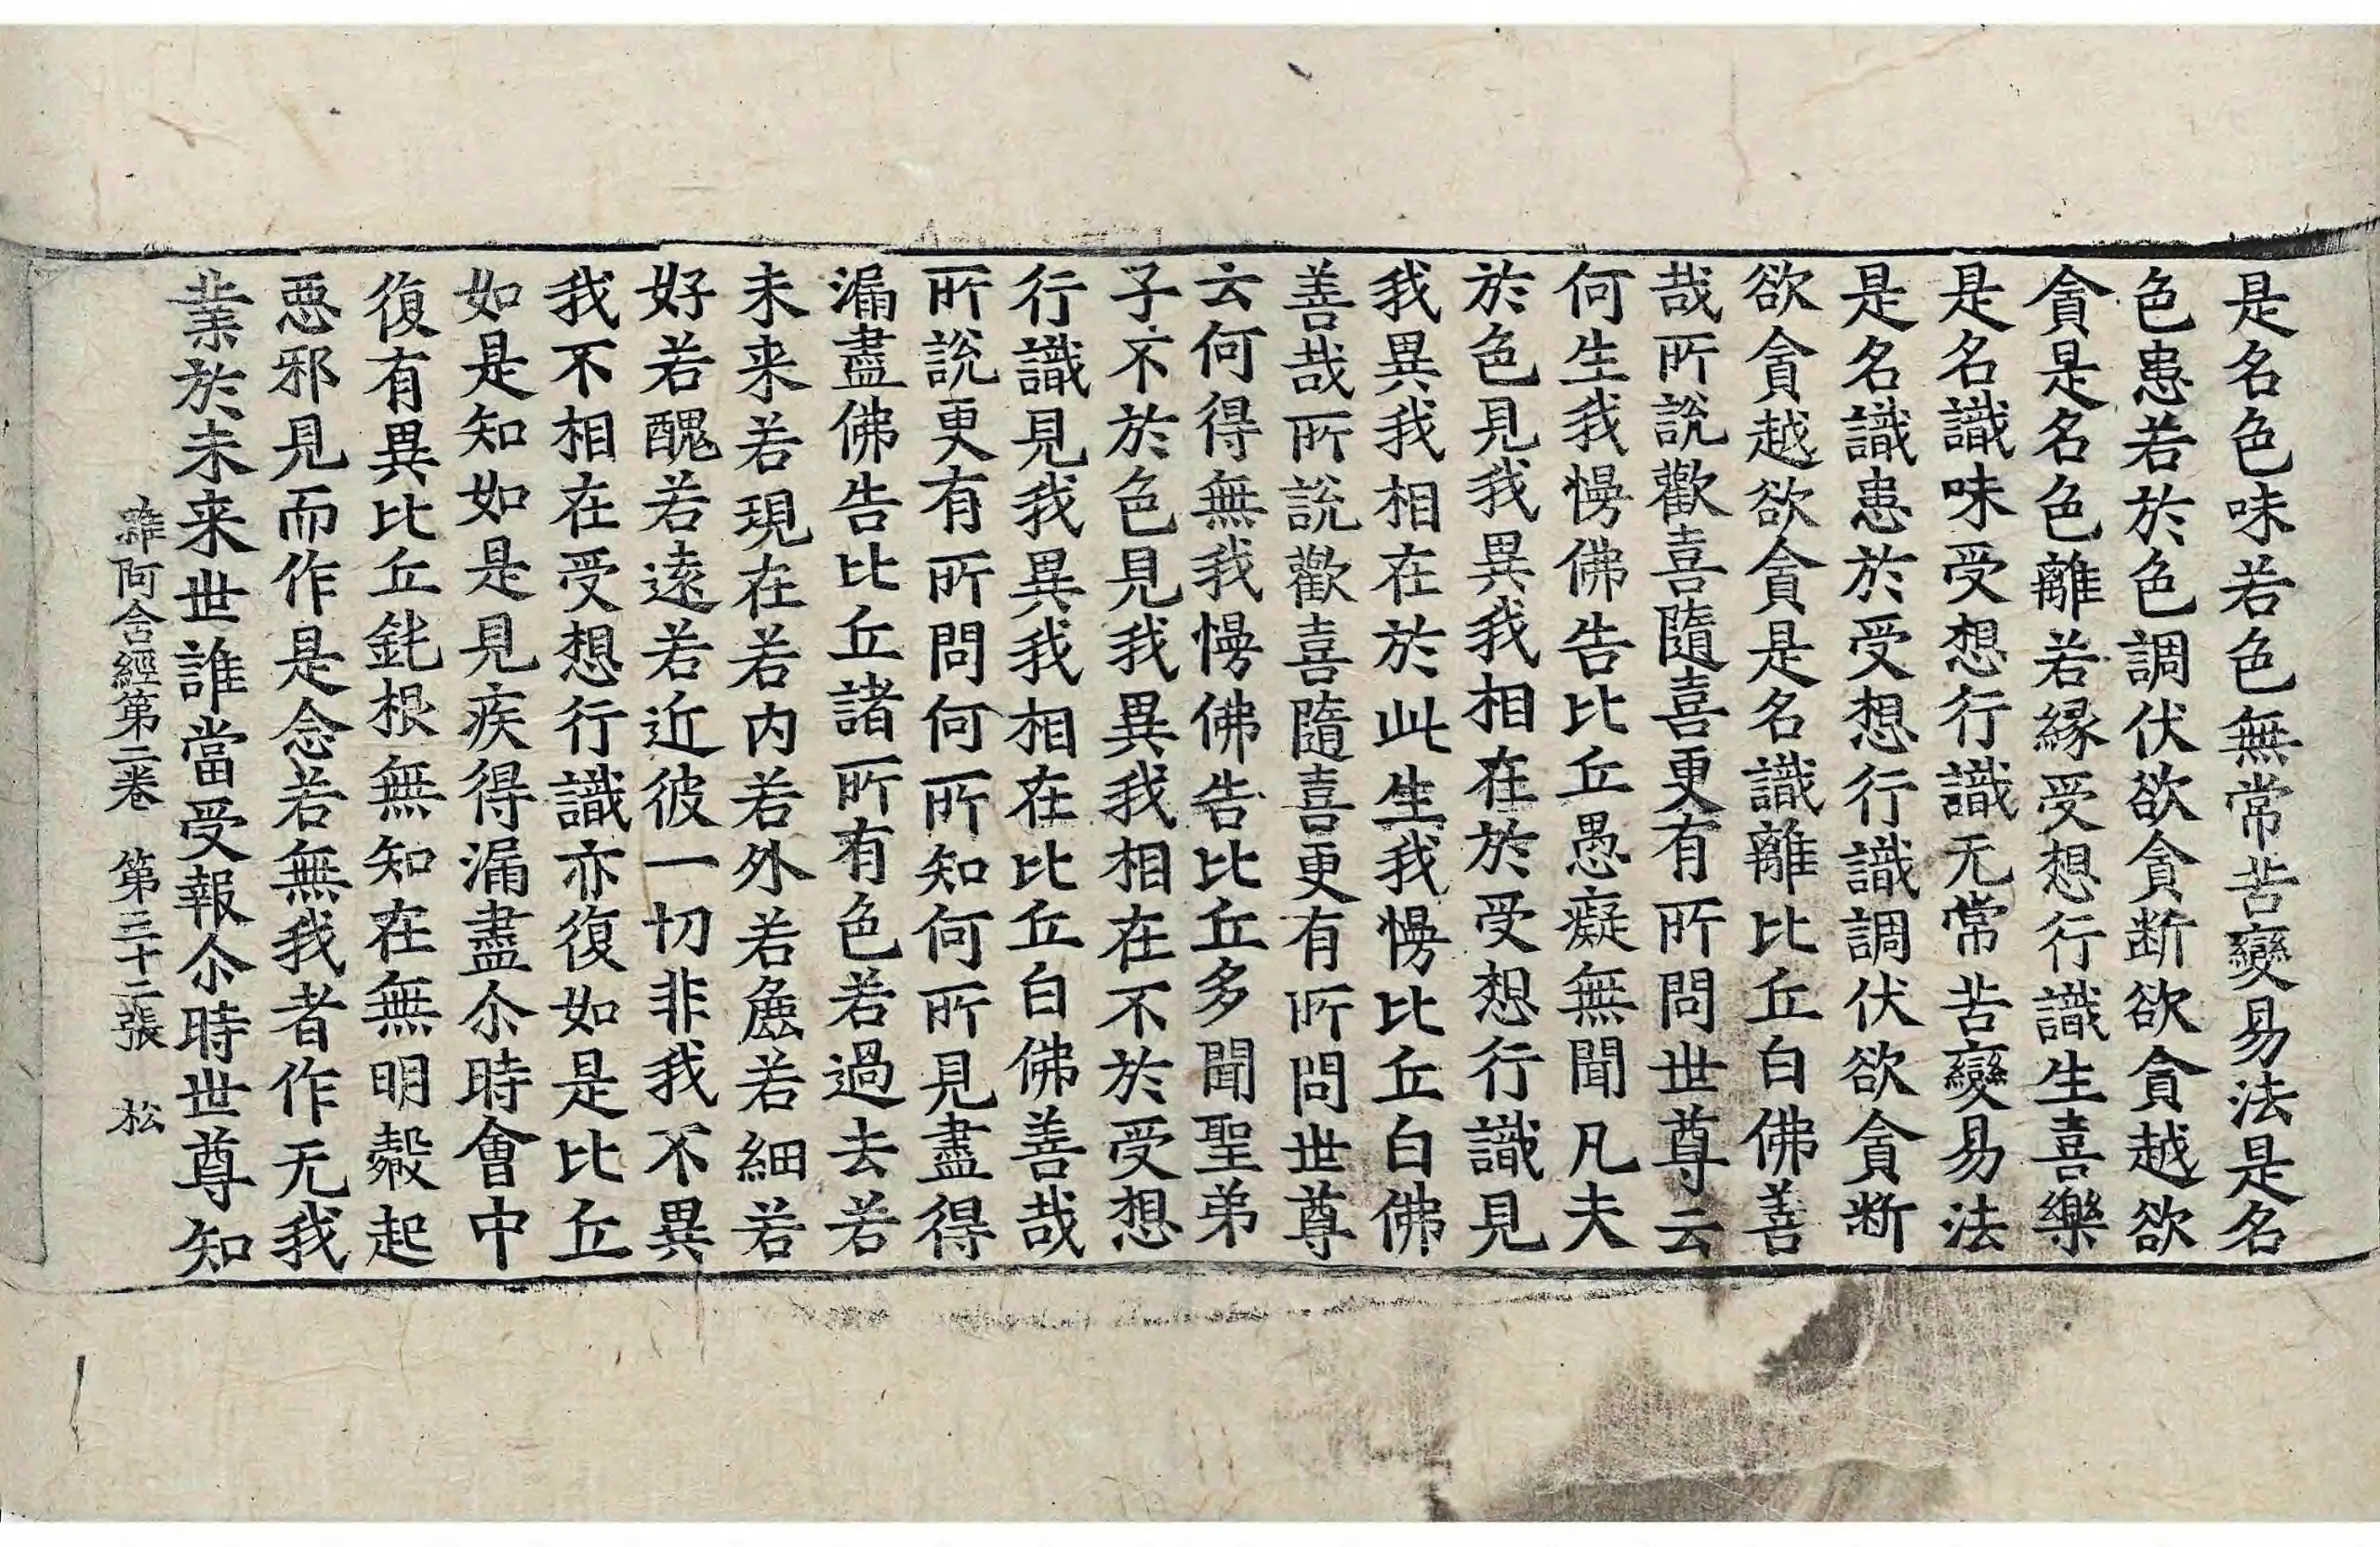 是名色味若色無常苦變易法是名
色患若於色調伏欲貪断欲貪越欲
貪是名色離若縁受想行識生喜樂
是名識味受想行識无常苦變易法
是名識患於受想行識調伏欲貪断
欲貪越欲貪是名識離比丘白佛善
哉所說歡喜隨喜更有所問世尊云
何生我慢佛告比丘愚癡無聞凡夫
於色見我異我相在於受想行識見
我異我相在於此生我慢比丘白佛
善哉所說歡喜隨喜更有所問世尊
云何得無我慢佛告比丘多聞聖弟
子不於色見我異我相在不於受想
行識見我異我相在比丘白佛善哉
所說更有所問何所知何所見盡得
漏盡佛告比丘諸所有色若過去若
未来若現在若内若外若麁若細若
好若醜若遠若近彼一切非我不異
我不相在受想行識亦復如是比丘
如是知如是見疾得漏盡尒時會中
復有異比丘鈍根無知在無明㲉起
悪邪見而作是念若無我者作无我
業於未来世誰當受報尒時世尊知
雜阿含經第二卷　第三十二張　松